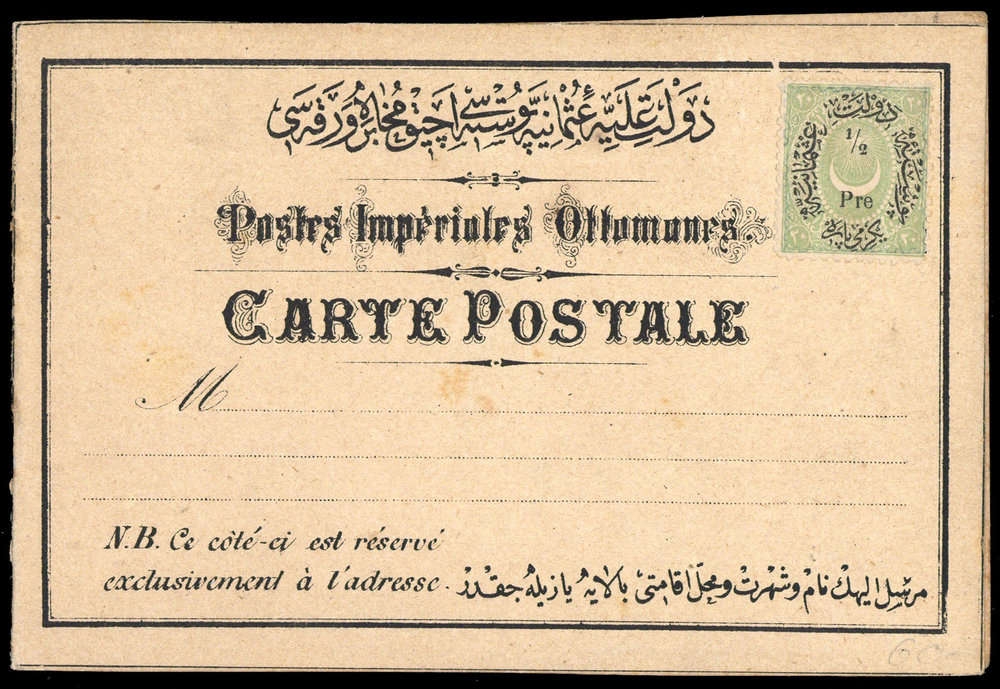 دولت علیه عثمانیه پوسته سی آچیق مخابره ورقه سی
Postes Impériales Ottomanes.
CARTE POSTALE
M
N.B. Ce côté-ci est réservé
exclusivement à l'adresse.
مرسل الیهك نام و شهرت و محل اقامتی بالایه یازیله جقدر
دولت
عثمانیه
1/2
Pre
یکرمی پاره
٢٠
٢٠